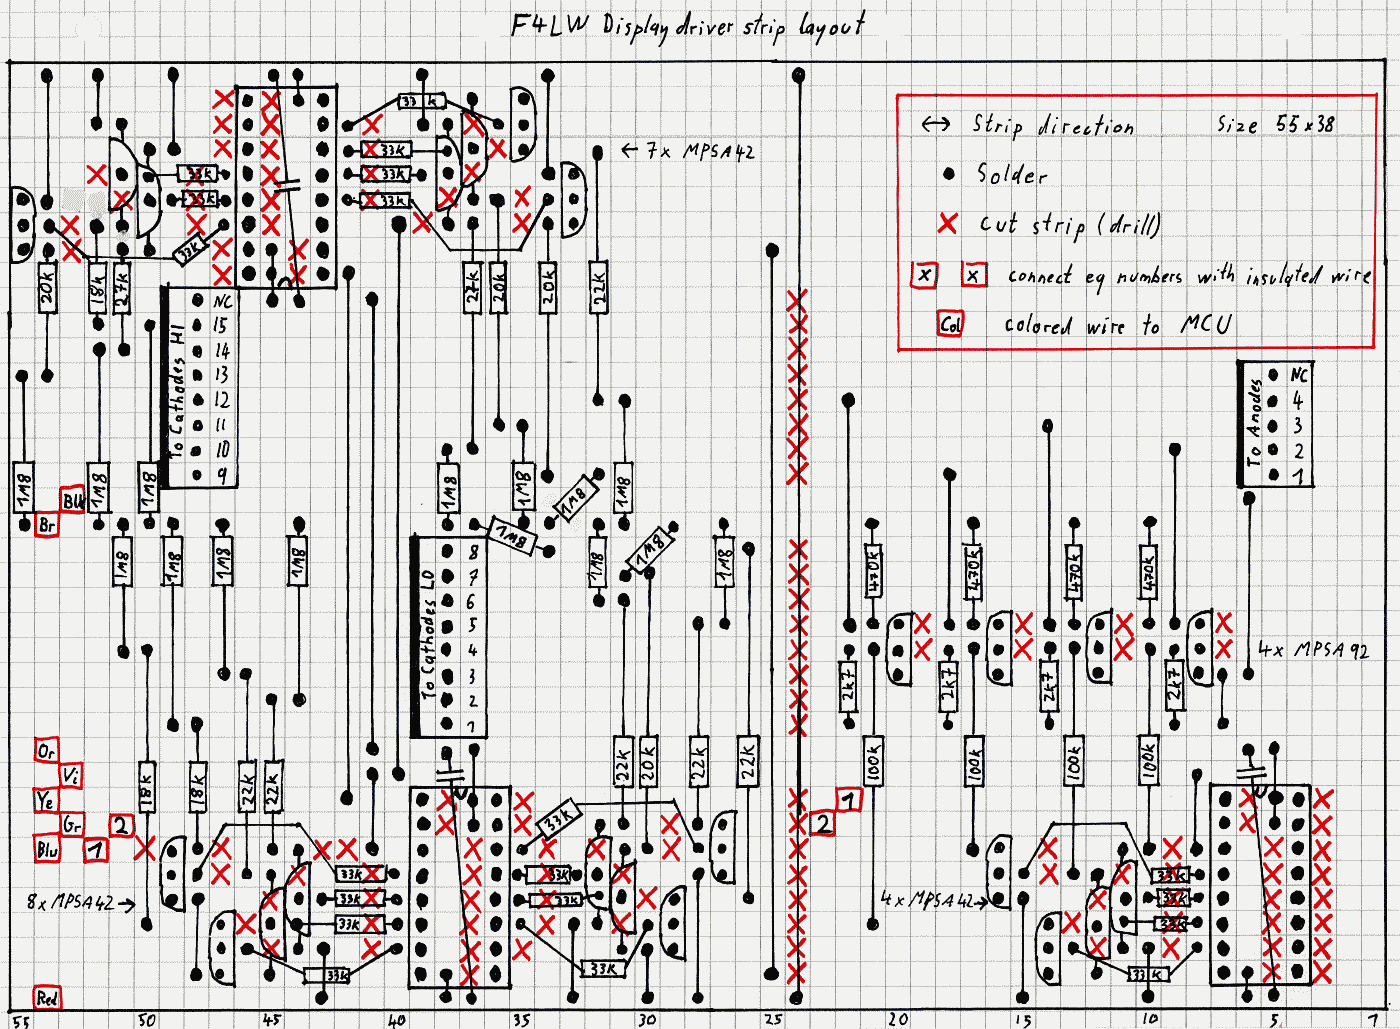 F4LW Display driver strip layout
↔ Strip direction Size 55x38
Solder
X Cut strip (drill)
x x connect eq numbers with insulated wire
Col colored wire to MCU
33k
33k
33k
33k
← 7x MPSA42
33k
33k
33k
20k
18k
27k
27k
20k
20k
22k
To Cathodes HI
NC
15
14
13
12
11
10
9
To Anodes
NC
4
3
2
1
1M8
1M8
1M8
1M8
1M8
1M8
1M8
1M8
Blk
Br
1M8
1M8
1M8
1M8
1M8
1M8
1M8
To Cathodes LO
8
7
6
5
4
3
2
1
470k
470k
470k
470k
4x MPSA92
2k7
2k7
2k7
2k7
Or
Vi
Ye
Gr
Blu
2
1
18k
18k
22k
22k
22k
20k
22k
22k
100k
100k
100k
100k
1
2
33k
33k
33k
33k
33k
33k
33k
33k
8x MPSA42 →
4x MPSA42 →
33k
33k
33k
33k
Red
55 50 45 40 35 30 25 20 15 10 5 1